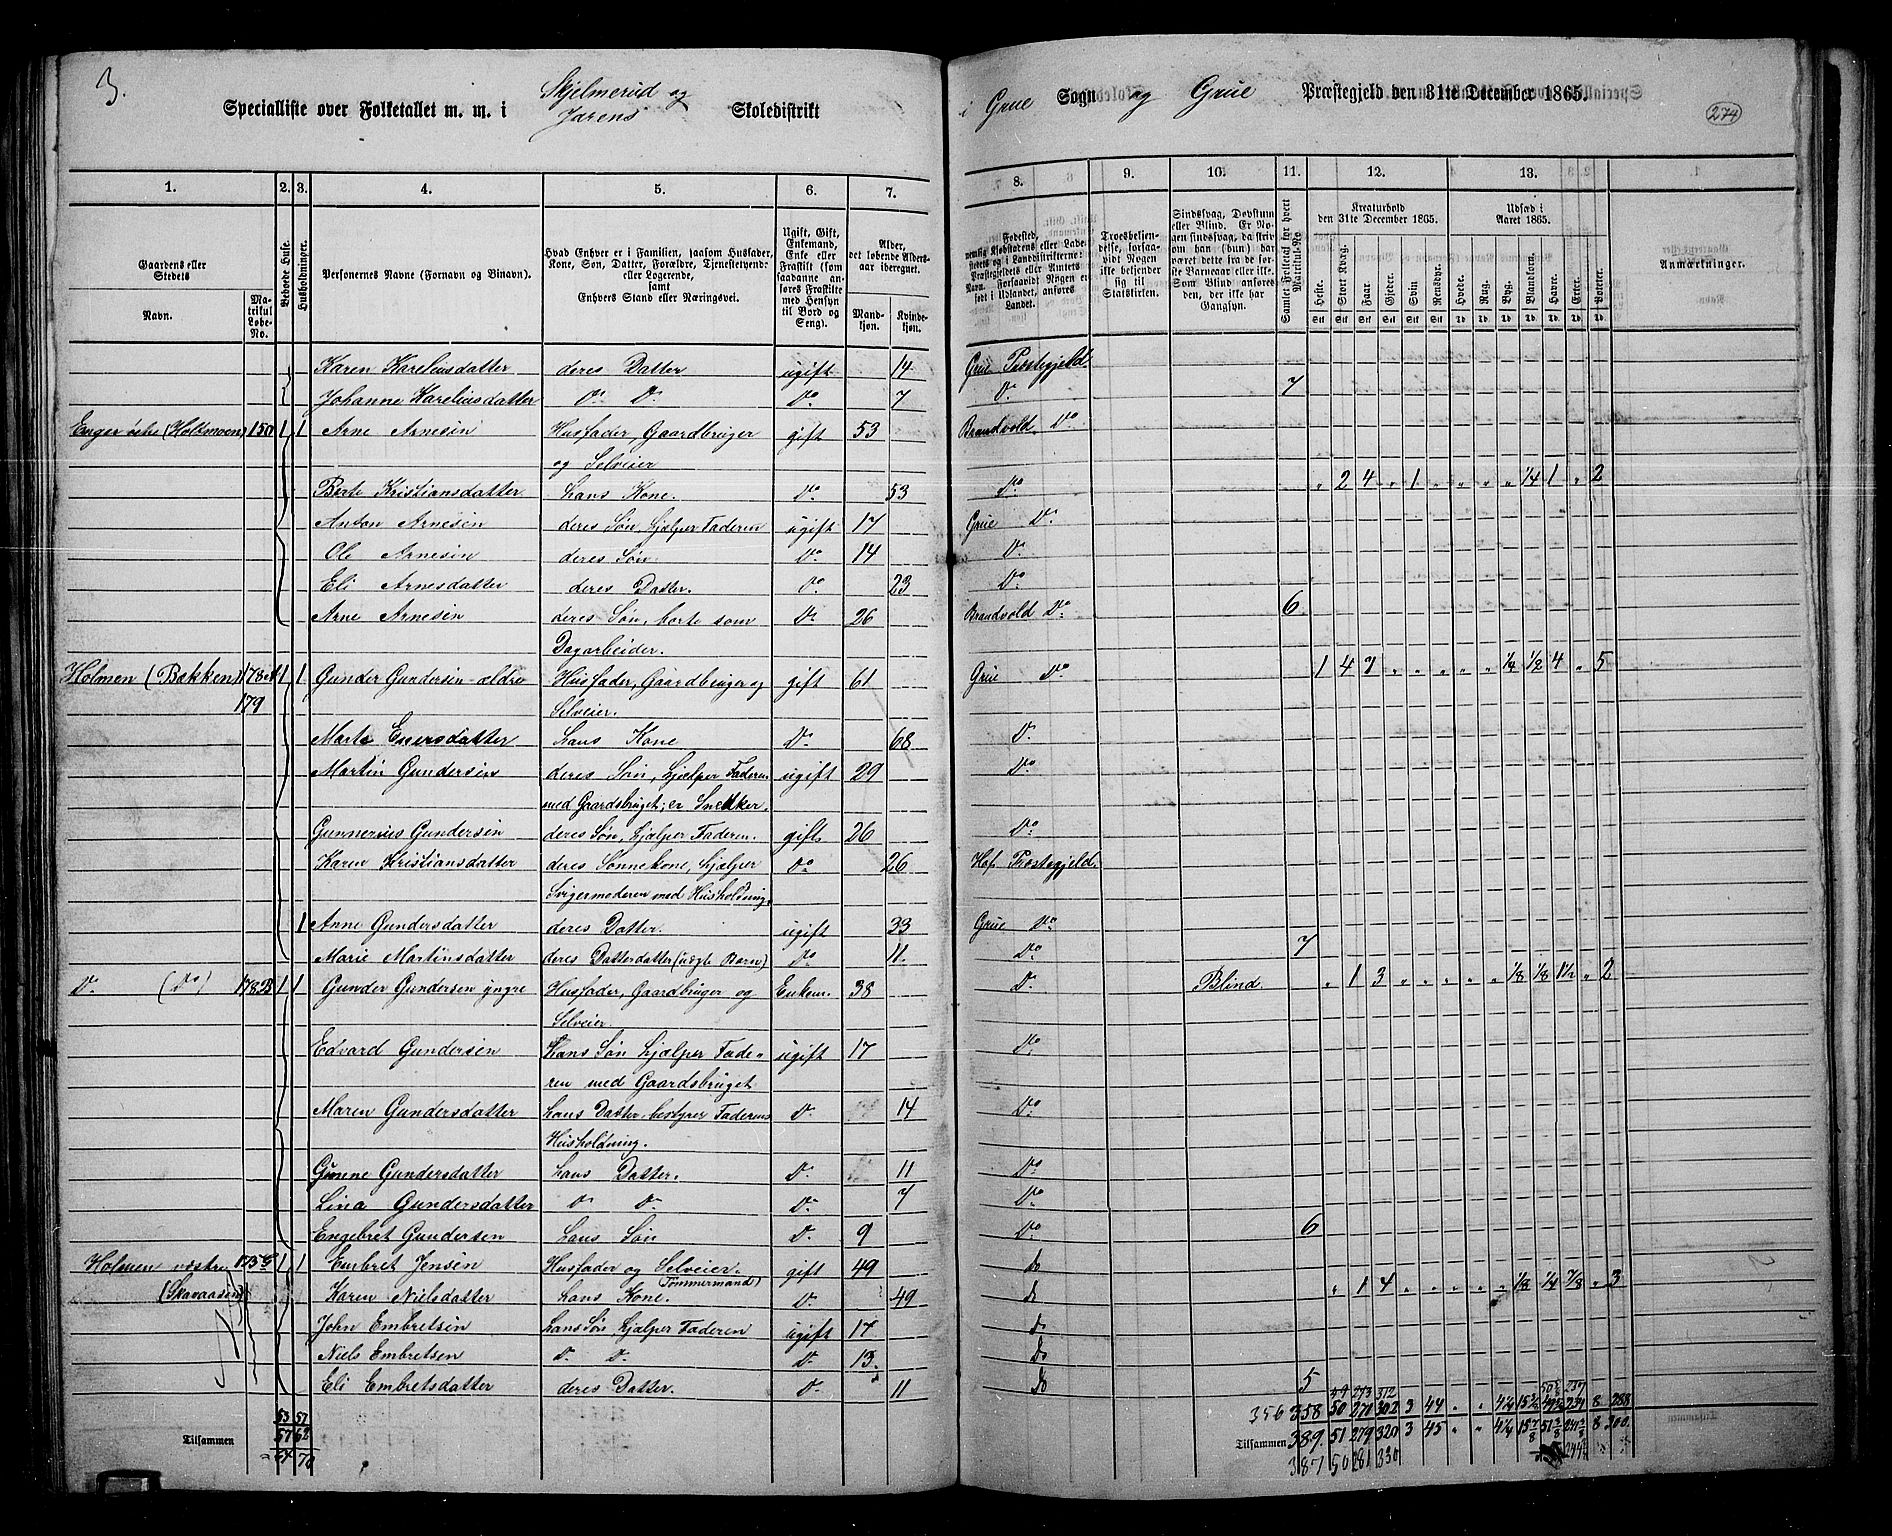 3.
Specialliste over Folketallet m. m. i Skjelmerud og Jarens Skoledistrikt
i Grue Sogn og Grue Præstegjeld den 31te December 1865.
274
1. 2. 3. 4. 5. 6. 7.
8. 9. 10. 11. 12. 13.
Gaardens eller Stedets Navn.
Matrikul Løbe-No.
Beboede Huse.
Husholdninger.
Personernes Navne (Fornavn og Binavn).
Hvad Enhver er i Familien, saasom Husfader, Kone, Søn, Datter, Forældre, Tjenestetyende eller Logerende, samt Enhvers Stand eller Næringsvei.
Ugift, Gift, Enkemand, Enke eller Fraskilt (som saadanne anføres Fraskilte med Hensyn til Bord og Seng).
Alder, det løbende Aldersaar iberegnet.
Mandkjøn. Kvindekjøn.
Troesbekjendelse, forsaavidt Nogen ikke bekjender sig til Statskirken.
Sindssvag, Døvstum eller Blind. Er Nogen sindssvag, da skrives hvorvidt han (hun) har været dette fra før første Barneaar eller ikke. Som Blind anføres den, der ikke har Gangsyn.
Samlet Folketal for hvert Matrikul-No
Kreaturhold den 31te December 1865.
Udsæd i Aaret 1865.
Heste. Stort Kvæg. Faar. Gjeder. Sviin. Rensdyr. Hvede. Rug. Byg. Blandkorn. Havre. Erter. Poteter.
Anmærkninger.
Karen Kareliusdatter deres Datter ugift 14 Grue Præstegjeld
Johanne Kareliusdatter Do Do Do 7 Do 7
Enger østre (Holtmoen) 150 1 1 Arne Arnesen Husfader, Gaardbruger gift 53 Brandvold Do
og Selveier
Berte Kristiansdatter hans Kone. Do 53 Do " 2 4 " 1 " " " " 1/4 1 " 2
Anton Arnesen deres Søn, hjælper Faderen ugift 17 Grue Do
Ole Arnesen deres Søn. Do 14 Do
Eli Arnesdatter deres Datter. Do 23 Do
Arne Arnesen deres Søn, borte som Do 26 Brandvold Do 6
Dagarbeider.
Holmen (Bakken) 178A 1 1 Gunder Gundersen ældre Husfader, Gaardbruger og gift 61 Grue Do 1 4 7 " " " " " 1/4 1/2 4 " 5
179 Selveier.
Marte Enersdatter hans Kone Do 68 Do
Martin Gundersen deres Søn, hjælper Faderen ugift 29 Do
med Gaardsbruget; er Snekker.
Gunnerius Gundersen deres Søn, hjælper Faderen. gift 26 Do
Karen Kristiansdatter deres Sønnekone, hjælper Do 26 Hof Præstegjeld.
Svigermoderen med Husholdning.
1 Anne Gundersdatter deres Datter. ugift 33 Grue Do
Marie Martinsdatter deres Datterdatter (uægte Barn) Do 11. Do 7
Do (Do) 178B 1 1 Gunder Gundersen yngre Husfader, Gaardbruger og Enkem. 38 Do Blind " 1 3 " " " " " 1/8 1/8 1 1/2 " 2
Selveier.
Edvard Gundersen Hans Søn hjælper Fade- ugift 17 Do
ren med Gaardsbruget
Maren Gundersdatter hans Datter, bestyrer Faderens Do 14 Do
Husholdning.
Gunne Gundersdatter hans Datter. Do 11 Do
Lina Gundersdatter Do Do Do 7 Do
Engebret Gundersen hans Søn Do 9 Do 6
Holmen vestre 1 1 Embret Jensen Husfader og Selveier. gift 49 do
(Skavaasen) (Tømmermand)
Karen Nielsdatter hans Kone. Do 49 do " 1 4 " " " " " 1/8 1/4 7/8 " 3
John Embretsen hans Søn, hjælper Faderen ugift 17 do
Niels Embretsen Do Do Do 13. do
Eli Embretsdatter deres Datter. Do 11 do 5
53 57
Tilsammen 57 62
64 70
356 358 50 270 302 3 44 " "
Tilsammen 389. 51 279 320 3 45 " "
387 50 281 330